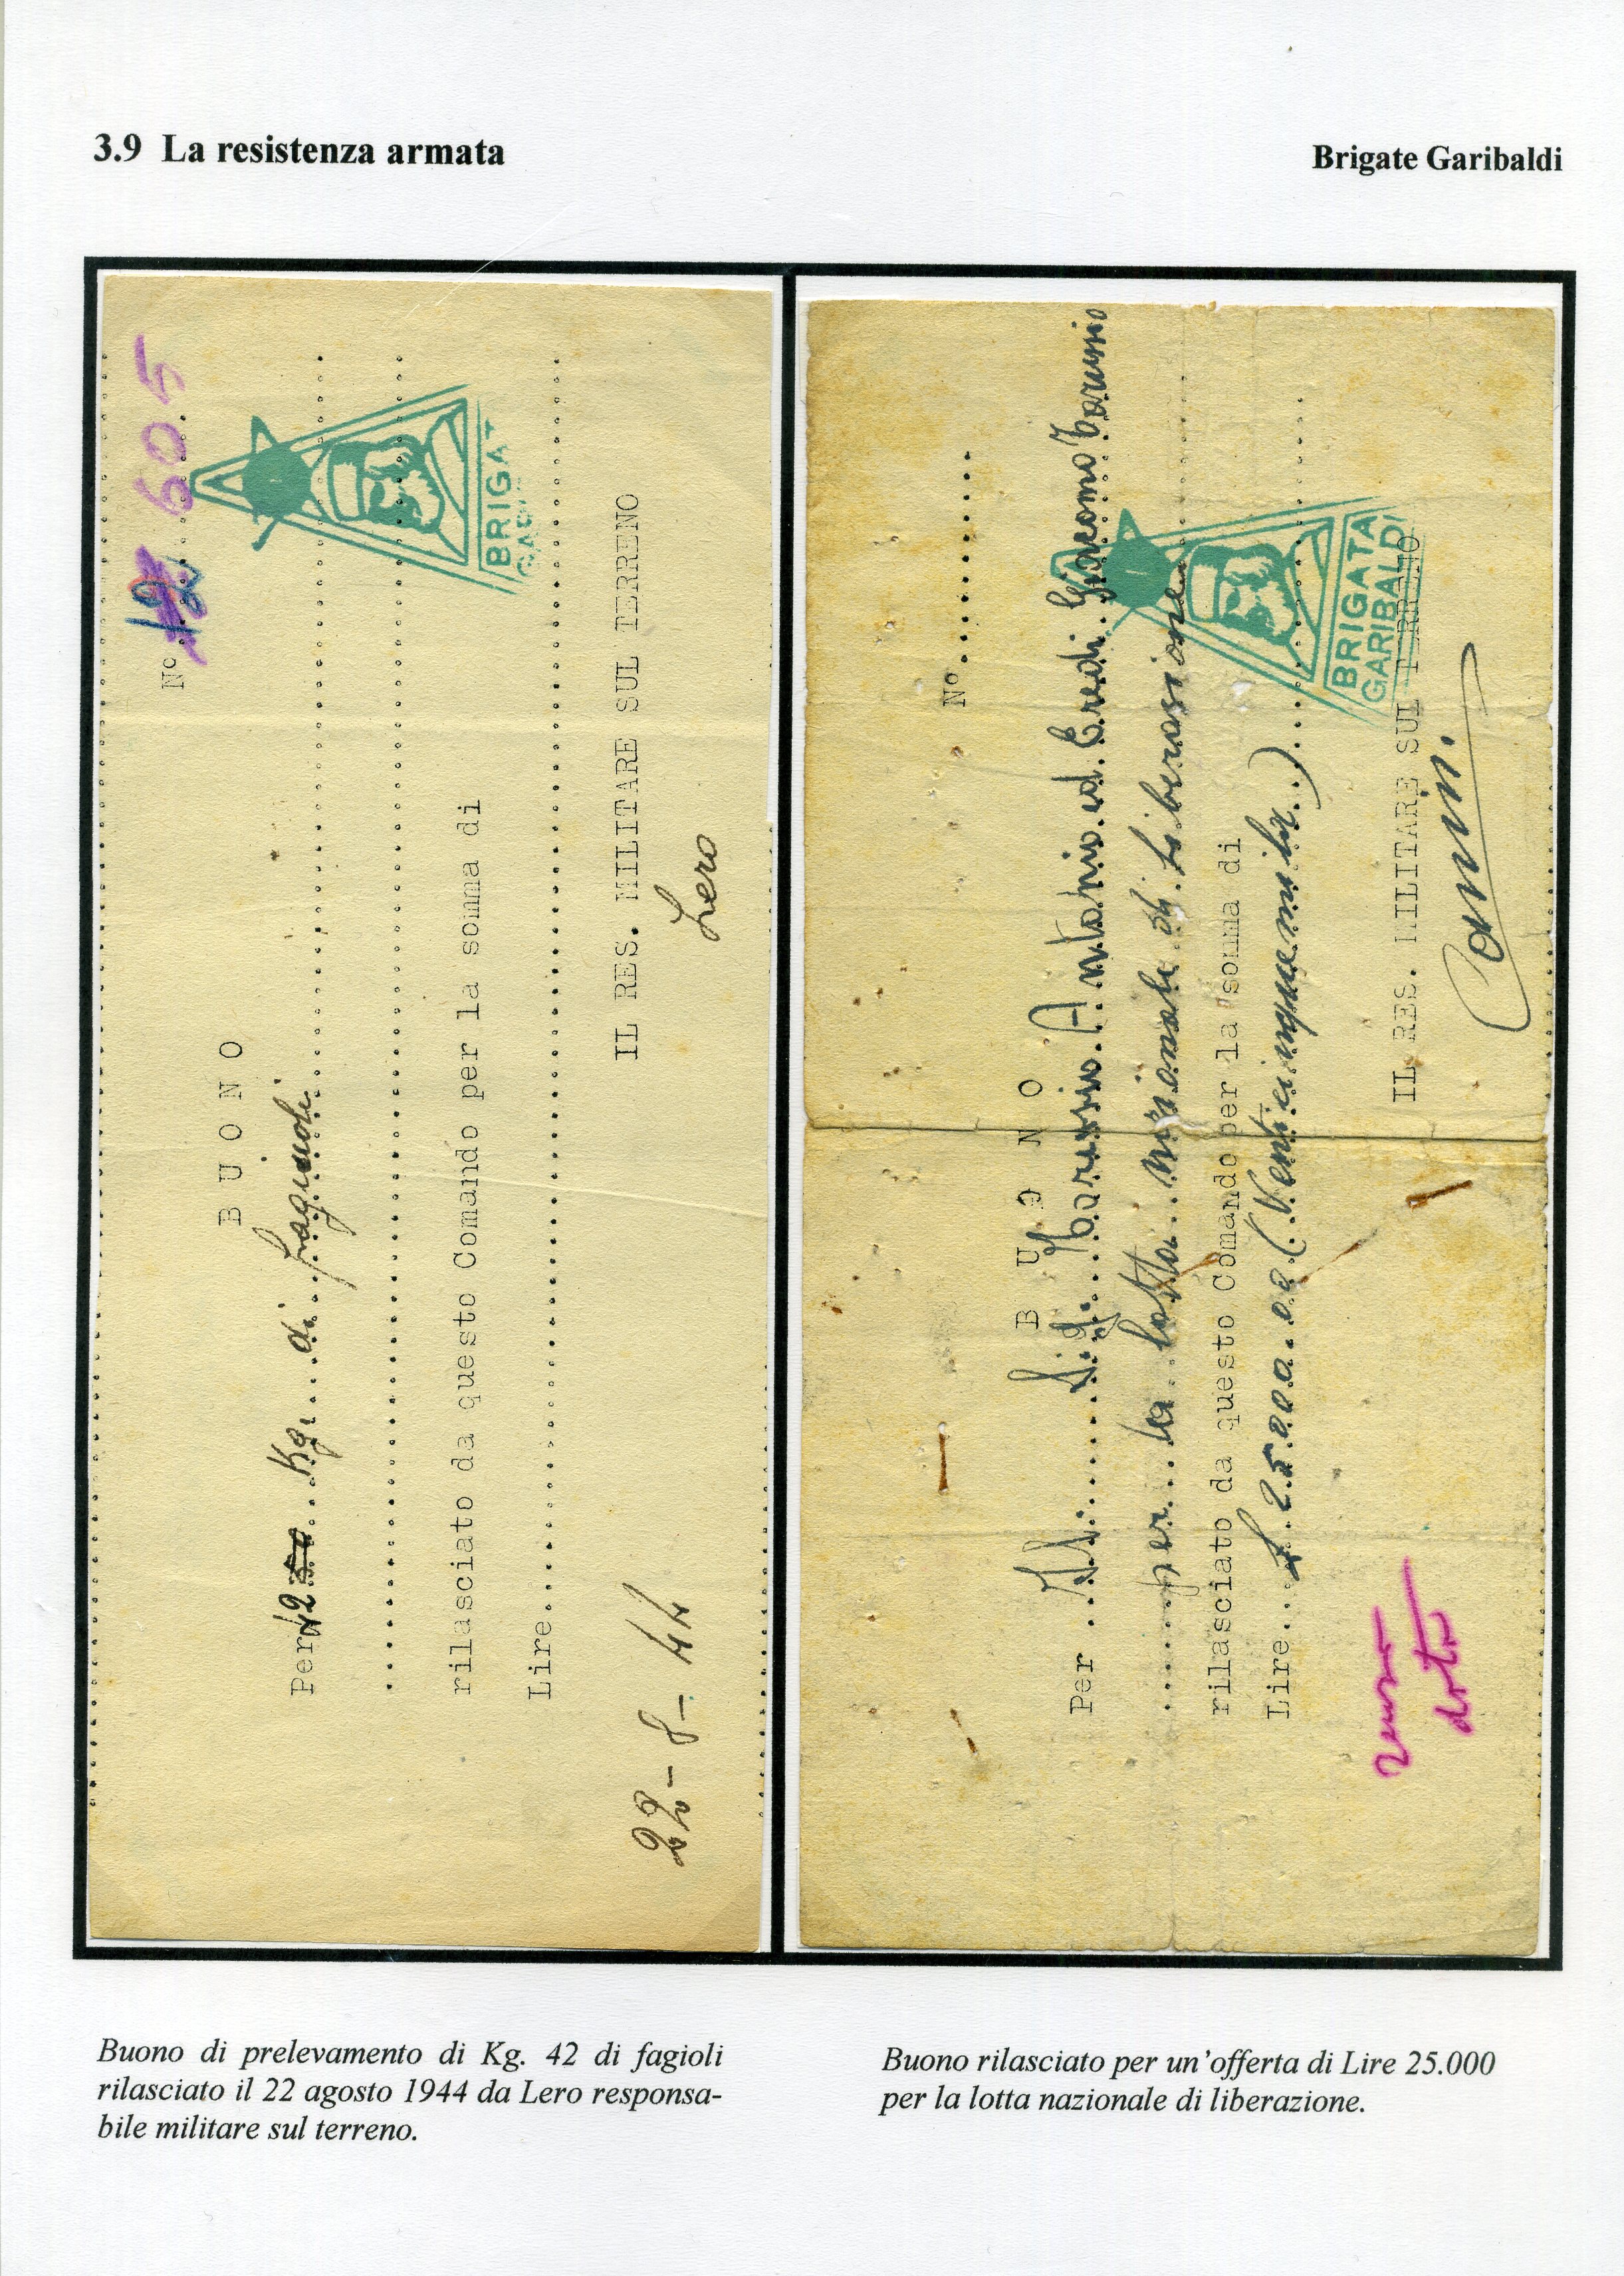 3.9 La resistenza armata
Brigate Garibaldi
Nº 12 605
B U O N O
Per 42 Kg. di fagiuoli
rilasciato da questo Comando per la somma di
Lire
IL RES. MILITARE SUL TERRENO
Lero
22-8-44
BRIGAT
GARI
Nº
B U O N O
Per Il Sig. Antonio ed Eredi Giacomo
per la lotta nazionale di liberazione
rilasciato da questo Comando per la somma di
Lire £ 25000.00 (Venticinquemila)
IL RES. MILITARE SUL TERRENO
BRIGATA
GARIBALDI
senza
data
Buono di prelevamento di Kg. 42 di fagioli
rilasciato il 22 agosto 1944 da Lero responsa-
bile militare sul terreno.
Buono rilasciato per un'offerta di Lire 25.000
per la lotta nazionale di liberazione.